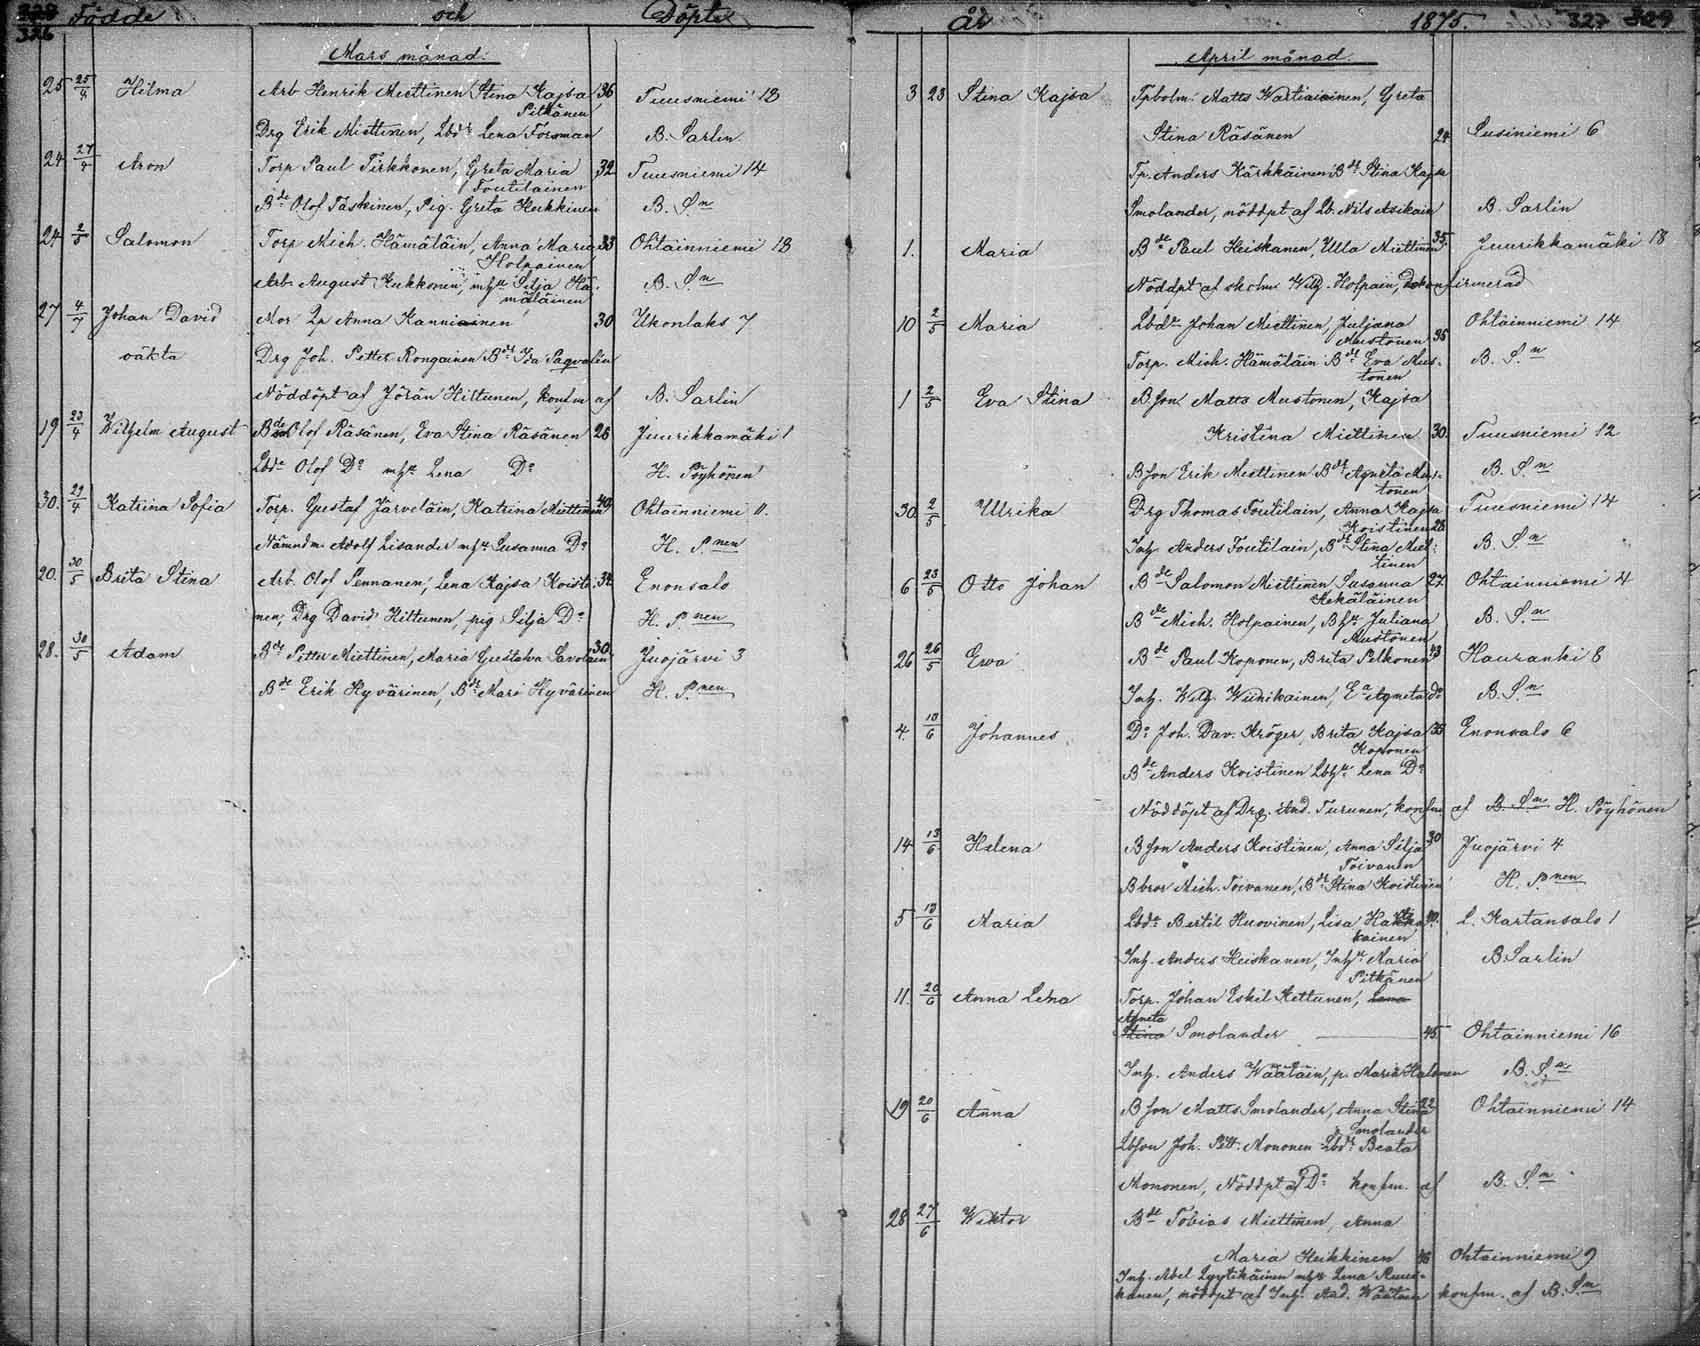 328 Födde och Döpte
326
Mars månad.
25 25/4 Hilma Arb. Henrik Miettinen, Stina Kajsa 36 Tuusniemi 13
Pitkänen
Drg Erik Miettinen, Lbdr Lena Forsman B. Sarlin
24 27/4 Aron Torp Paul Tirkkonen, Greta Maria 32 Tuusniemi 14
Toutilainen
Bde Olof Taskinen, Pig. Greta Heikkinen B. S:n
24 2/5 Salomon Torp Mich. Hämäläin, Anna Maria 33 Ohtainniemi 13
Holpainen
Arb. August Kukkonen, mhu Silja Hä- B. S:n
mäläinen
27 4/7 Johan David Mor Lp Anna Kanniainen 30 Ukonlaks 7
oäkta Drg Joh. Petter Rongainen Bdr Ida Pagvalin
Nöddöpt af Jöran Hiltunen, konfm af B. Sarlin
19 23/4 Wilhelm August Bde Olof Räsänen, Eva Stina Räsänen 26 Juurikkamäki 1
Lbde Olof Do mhu Lena Do H. Pöyhönen
30. 29/4 Katrina Sofia Torp. Gustaf Järveläin, Katrina Miettinen 40 Ohtainniemi 11.
Nämndm. Adolf Lisander mhu Susanna Do H. P:nen
20. 30/5 Brita Stina Arb. Olof Pennanen, Lena Kajsa Koisti- 34 Enonsalo
nen, Drg David Hiltunen, pig Silja Do H. P:nen
28. 30/5 Adam Bde Petter Miettinen, Maria Gustava Savolain 30 Juojärvi 3
Bde Erik Hyvärinen, Bdr Mari Hyvärinen H. P:nen
år 1875. 327 329
April månad.
3 23 Stina Kajsa Tpbolm. Matts Wartiainen, Greta
Stina Räsänen 24 Susiniemi 6
Tp. Anders Kärkkäinen Bdr Stina Kajsa
Smolander, nöddpt af Lb. Nils Asikain B. Sarlin
1. Maria Bde Paul Heiskanen, Ulla Miettinen 35. Juurikkamäki 18
Nöddpt af skolm. Wilh. Holpain, konfirmerad
10 2/5 Maria Lbde Johan Miettinen, Juljana Ohtainniemi 14
Mustonen 36
Torp. Mich. Hämäläin Bdr Eva Mus- B. S:n
tonen
1 2/5 Eva Stina Bson Matts Mustonen, Kajsa
Kristina Miettinen 30. Tuusniemi 12
Bson Erik Miettinen Bdr Agneta Mus- B. S:n
tonen
30 2/5 Ulrika Drg Thomas Toutilain, Anna Kajsa Tuusniemi 14
Koistinen 28
Inh. Anders Toutilain, Bdr Stina Miet- B. S:n
tinen
6 23/5 Otto Johan Bde Salomon Miettinen Susanna 27 Ohtainniemi 4
Kekäläinen
Bde Mich. Holpainen, Bhu Juliana B. S:n
Mustonen
26 26/5 Ewa Bde Paul Koponen, Brita Pelkonen 43 Hauranki 8
Inh. Wilh. Wainikainen, Ea Agneta do B. S:n
4. 10/6 Johannes Do Joh. Dav. Kröger, Brita Kajsa 35 Enonsalo 6
Koponen
Bde Anders Koistinen Lbhu Lena Do
Nöddöpt af Drg. And. Turunen, konfm af B. S:n H. Pöyhönen
14 13/6 Helena Bson Anders Koistinen, Anna Silja 30 Juojärvi 4
Toivanen
Bbror Mich. Toivanen, Bdr Stina Koistinen H. P:nen
5 13/6 Maria Lbde Bertil Huovinen, Lisa L. Kartansalo 1
kainen
Inh. Anders Heiskanen, Inhu Maria B. Sarlin
Pitkänen
11. 20/6 Anna Lena Torp. Johan Eskil Kettunen, Lena
Agneta
Stina Smolander 45. Ohtainniemi 16
Inh. Anders Wäätäin, p. Maria Halonen B. S:n
19 20/6 Anna Bson Matts Smolander, Anna Stina 22 Ohtainniemi 14
Smolander
Lbson Joh. Pett. Mononen Lbdr Beata
Mononen, Nöddpt af Do konfm. af B. S:n
28 27/6 Wiktor Bde Tobias Miettinen, Anna
Maria Heikkinen 46 Ohtainniemi 9
Inh. Abel Lyytikäinen mhu Lena Ruus-
kanen, nöddpt af Inh. And. Wäätäin konfm. af B. S:n